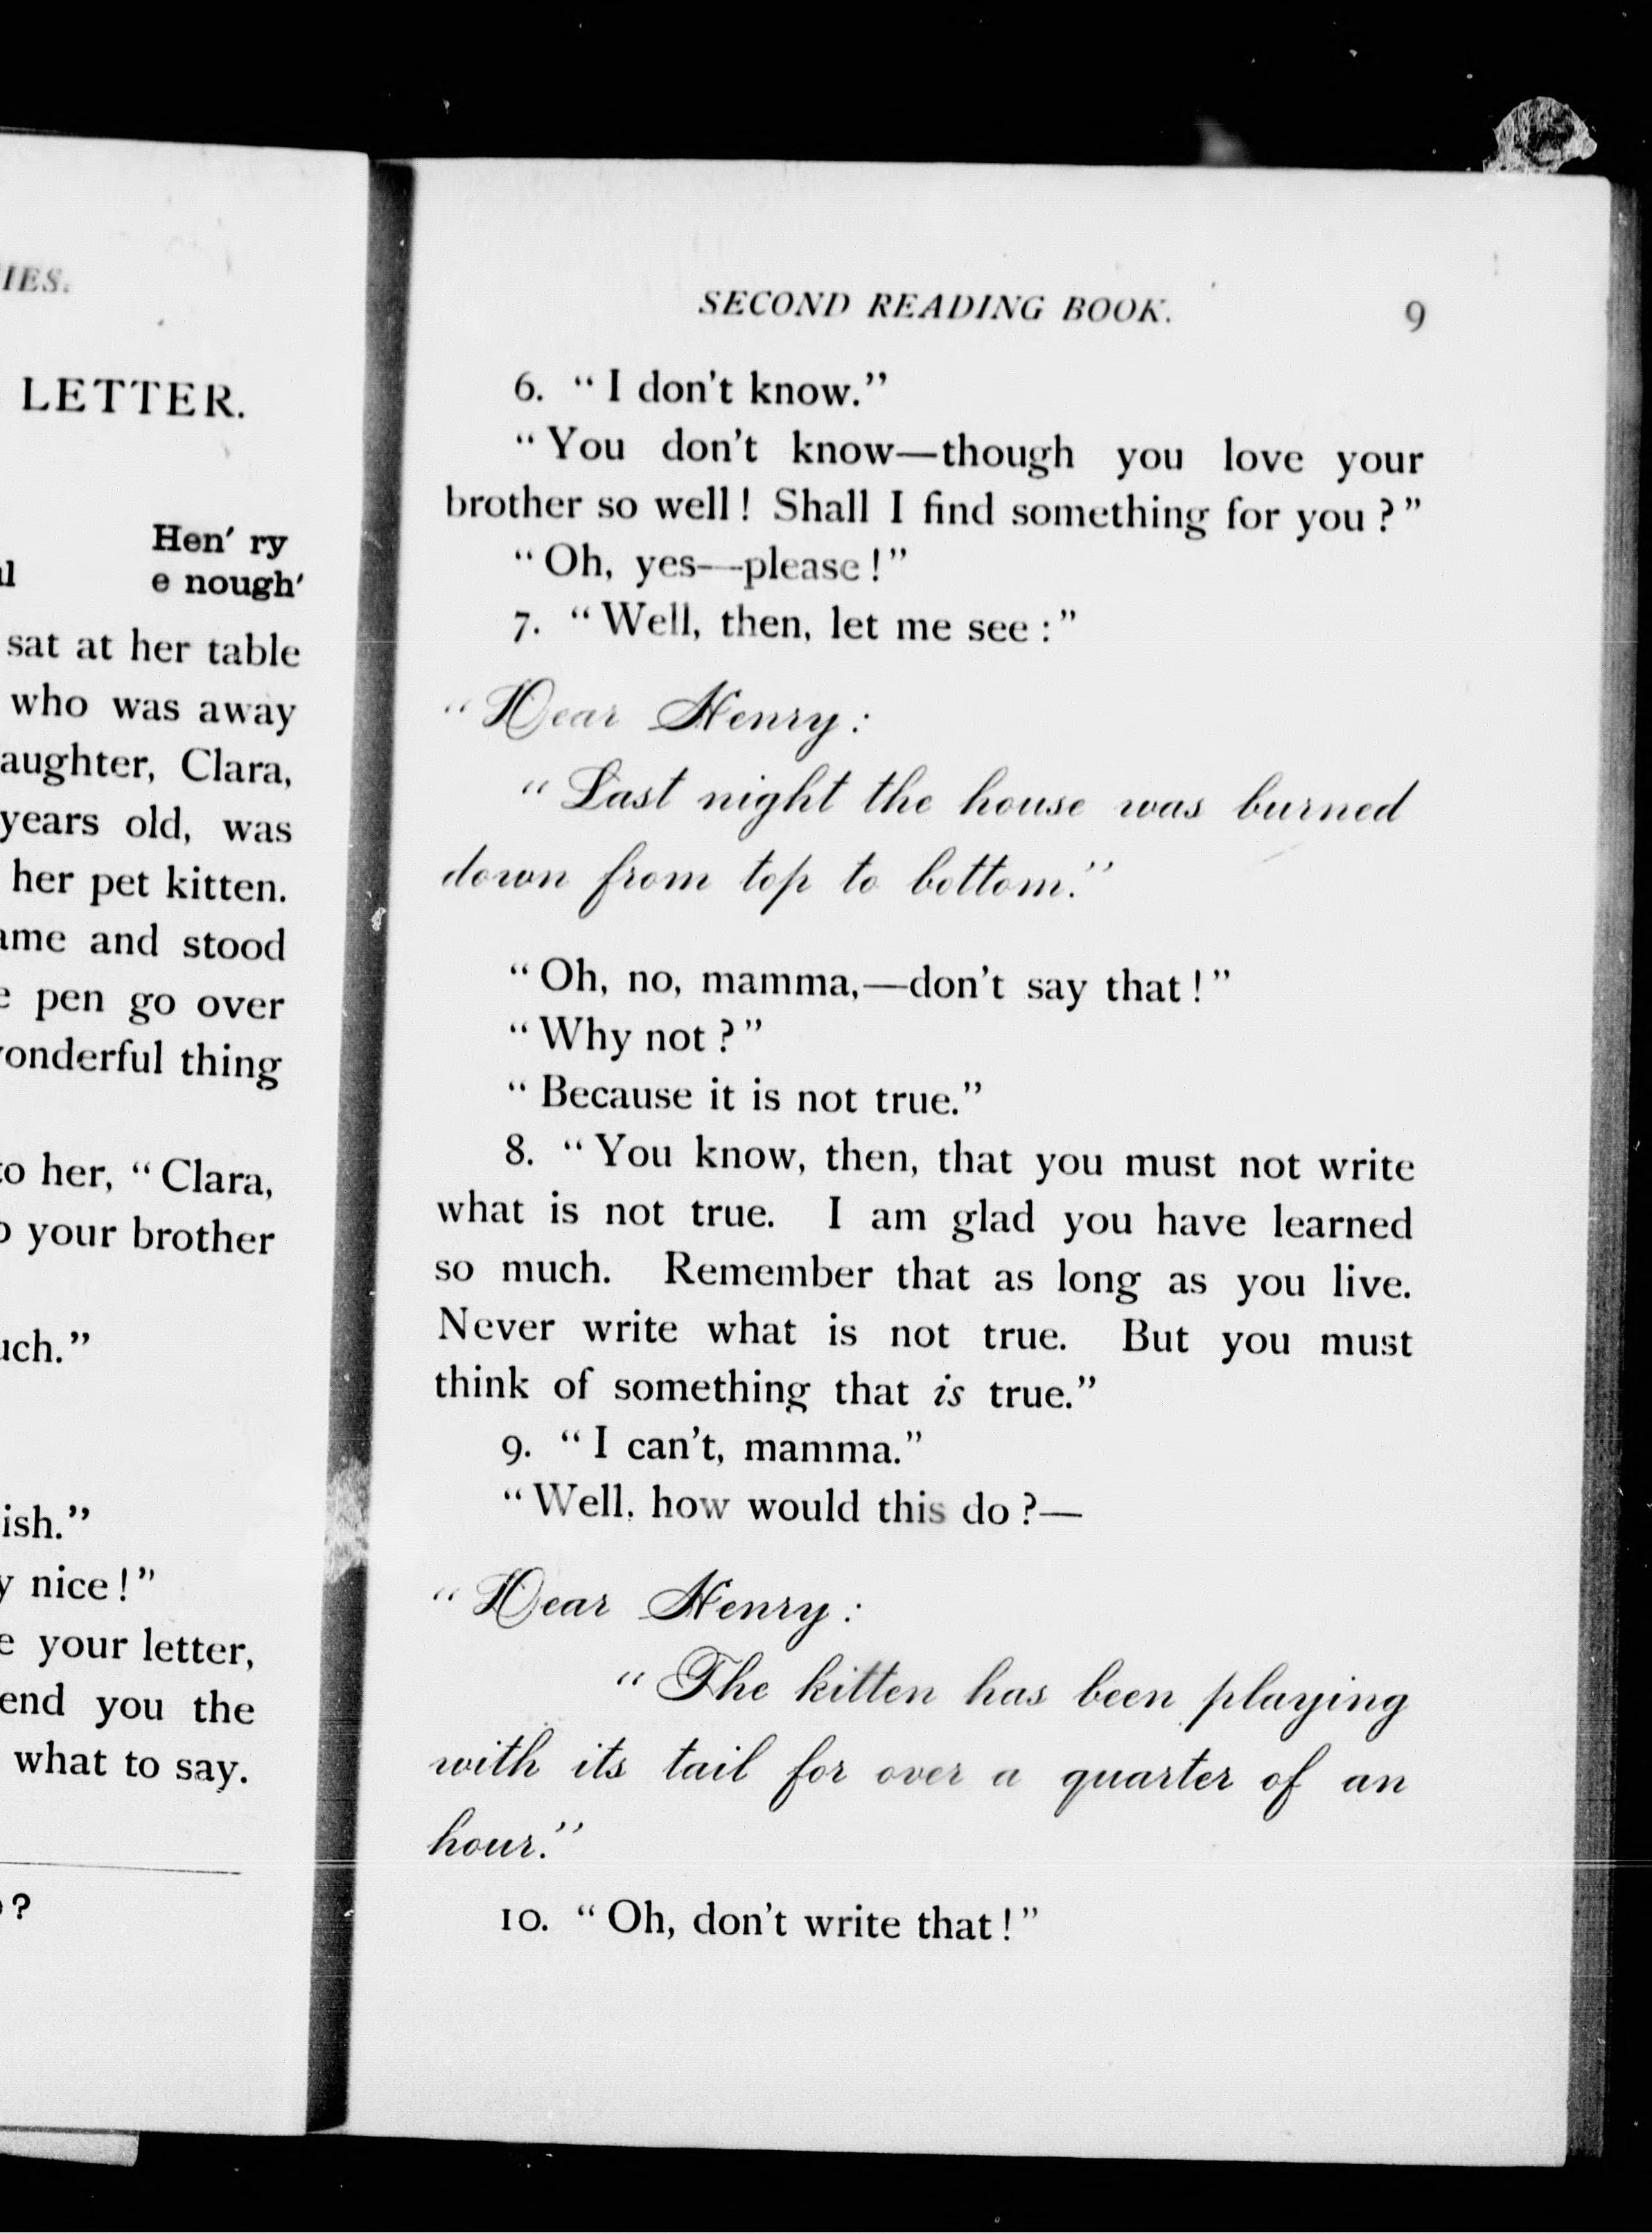 IES.
LETTER.
Hen′ ry
e nough′
sat at her table
who was away
aughter, Clara,
years old, was
her pet kitten.
ame and stood
pen go over
onderful thing
to her, “Clara,
your brother
uch.”
ish.”
nice!”
your letter,
end you the
what to say.
?
SECOND READING BOOK. 9
6. “I don't know.”
“You don't know—though you love your
brother so well! Shall I find something for you?”
“Oh, yes—please!”
7. “Well, then, let me see:”
“Dear Henry:
“Last night the house was burned
down from top to bottom.”
“Oh, no, mamma,—don't say that!”
“Why not?”
“Because it is not true.”
8. “You know, then, that you must not write
what is not true. I am glad you have learned
so much. Remember that as long as you live.
Never write what is not true. But you must
think of something that is true.”
9. “I can't, mamma.”
“Well, how would this do?—
“Dear Henry:
“The kitten has been playing
with its tail for over a quarter of an
hour.”
10. “Oh, don't write that!”